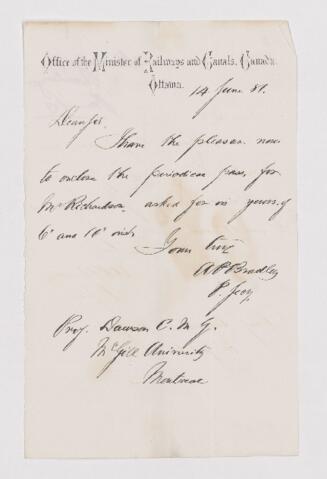 Office of the Minister of Railways and Canals. Canada.
Ottawa.
14 June 81.
Dear Sir
I have the pleasure now
to enclose the periodical pass, for
Mr Richardson, asked for in yours of
6th and 10th inst.
Yours truly
A P Bradley
P. Secy.
Prof. Dawson C. M. G.
McGill University
Montreal